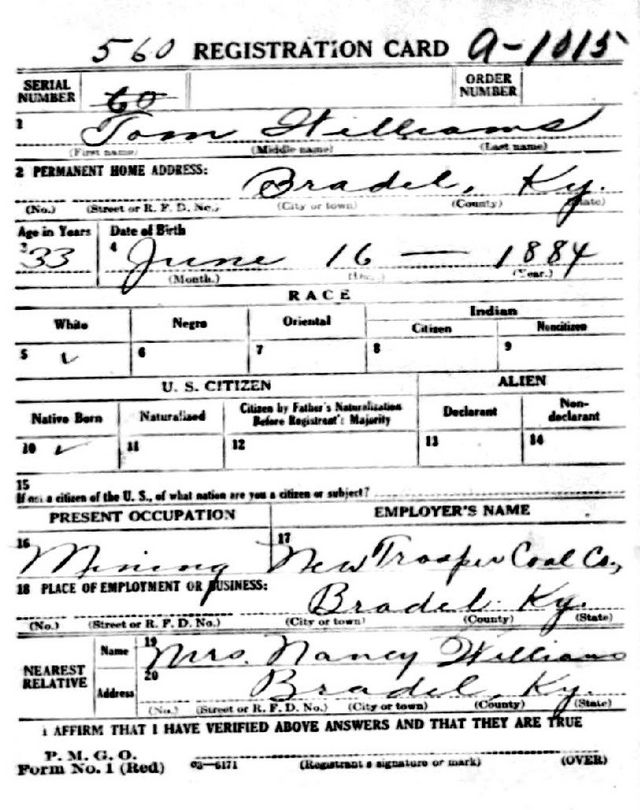 560 REGISTRATION CARD A-1015
SERIAL NUMBER 60 ORDER NUMBER
1 Tom Williams
(First name) (Middle name) (Last name)
2 PERMANENT HOME ADDRESS: Bradel, Ky.
(No.) (Street or R. F. D. No.) (City or town) (County) (State)
Age in Years Date of Birth
3 33 4 June 16 — 1884
(Month.) (Day.) (Year.)
RACE
White Negro Oriental Indian
Citizen Noncitizen
5 ✓ 6 7 8 9
U. S. CITIZEN ALIEN
Native Born Naturalized Citizen by Father's Naturalization Before Registrant's Majority Declarant Non-declarant
10 ✓ 11 12 13 14
15
If not a citizen of the U. S., of what nation are you a citizen or subject?
PRESENT OCCUPATION EMPLOYER'S NAME
16 Mining 17 New Trosper Coal Co,
18 PLACE OF EMPLOYMENT OR BUSINESS:
Bradel Ky.
(No.) (Street or R. F. D. No.) (City or town) (County) (State)
NEAREST RELATIVE Name 19 Mrs. Nancy Williams
Address 20 Bradel, Ky.
(No.) (Street or R. F. D. No.) (City or town) (County) (State)
I AFFIRM THAT I HAVE VERIFIED ABOVE ANSWERS AND THAT THEY ARE TRUE
P. M. G. O.
Form No. 1 (Red) 03—6171 (Registrant's signature or mark) (OVER)